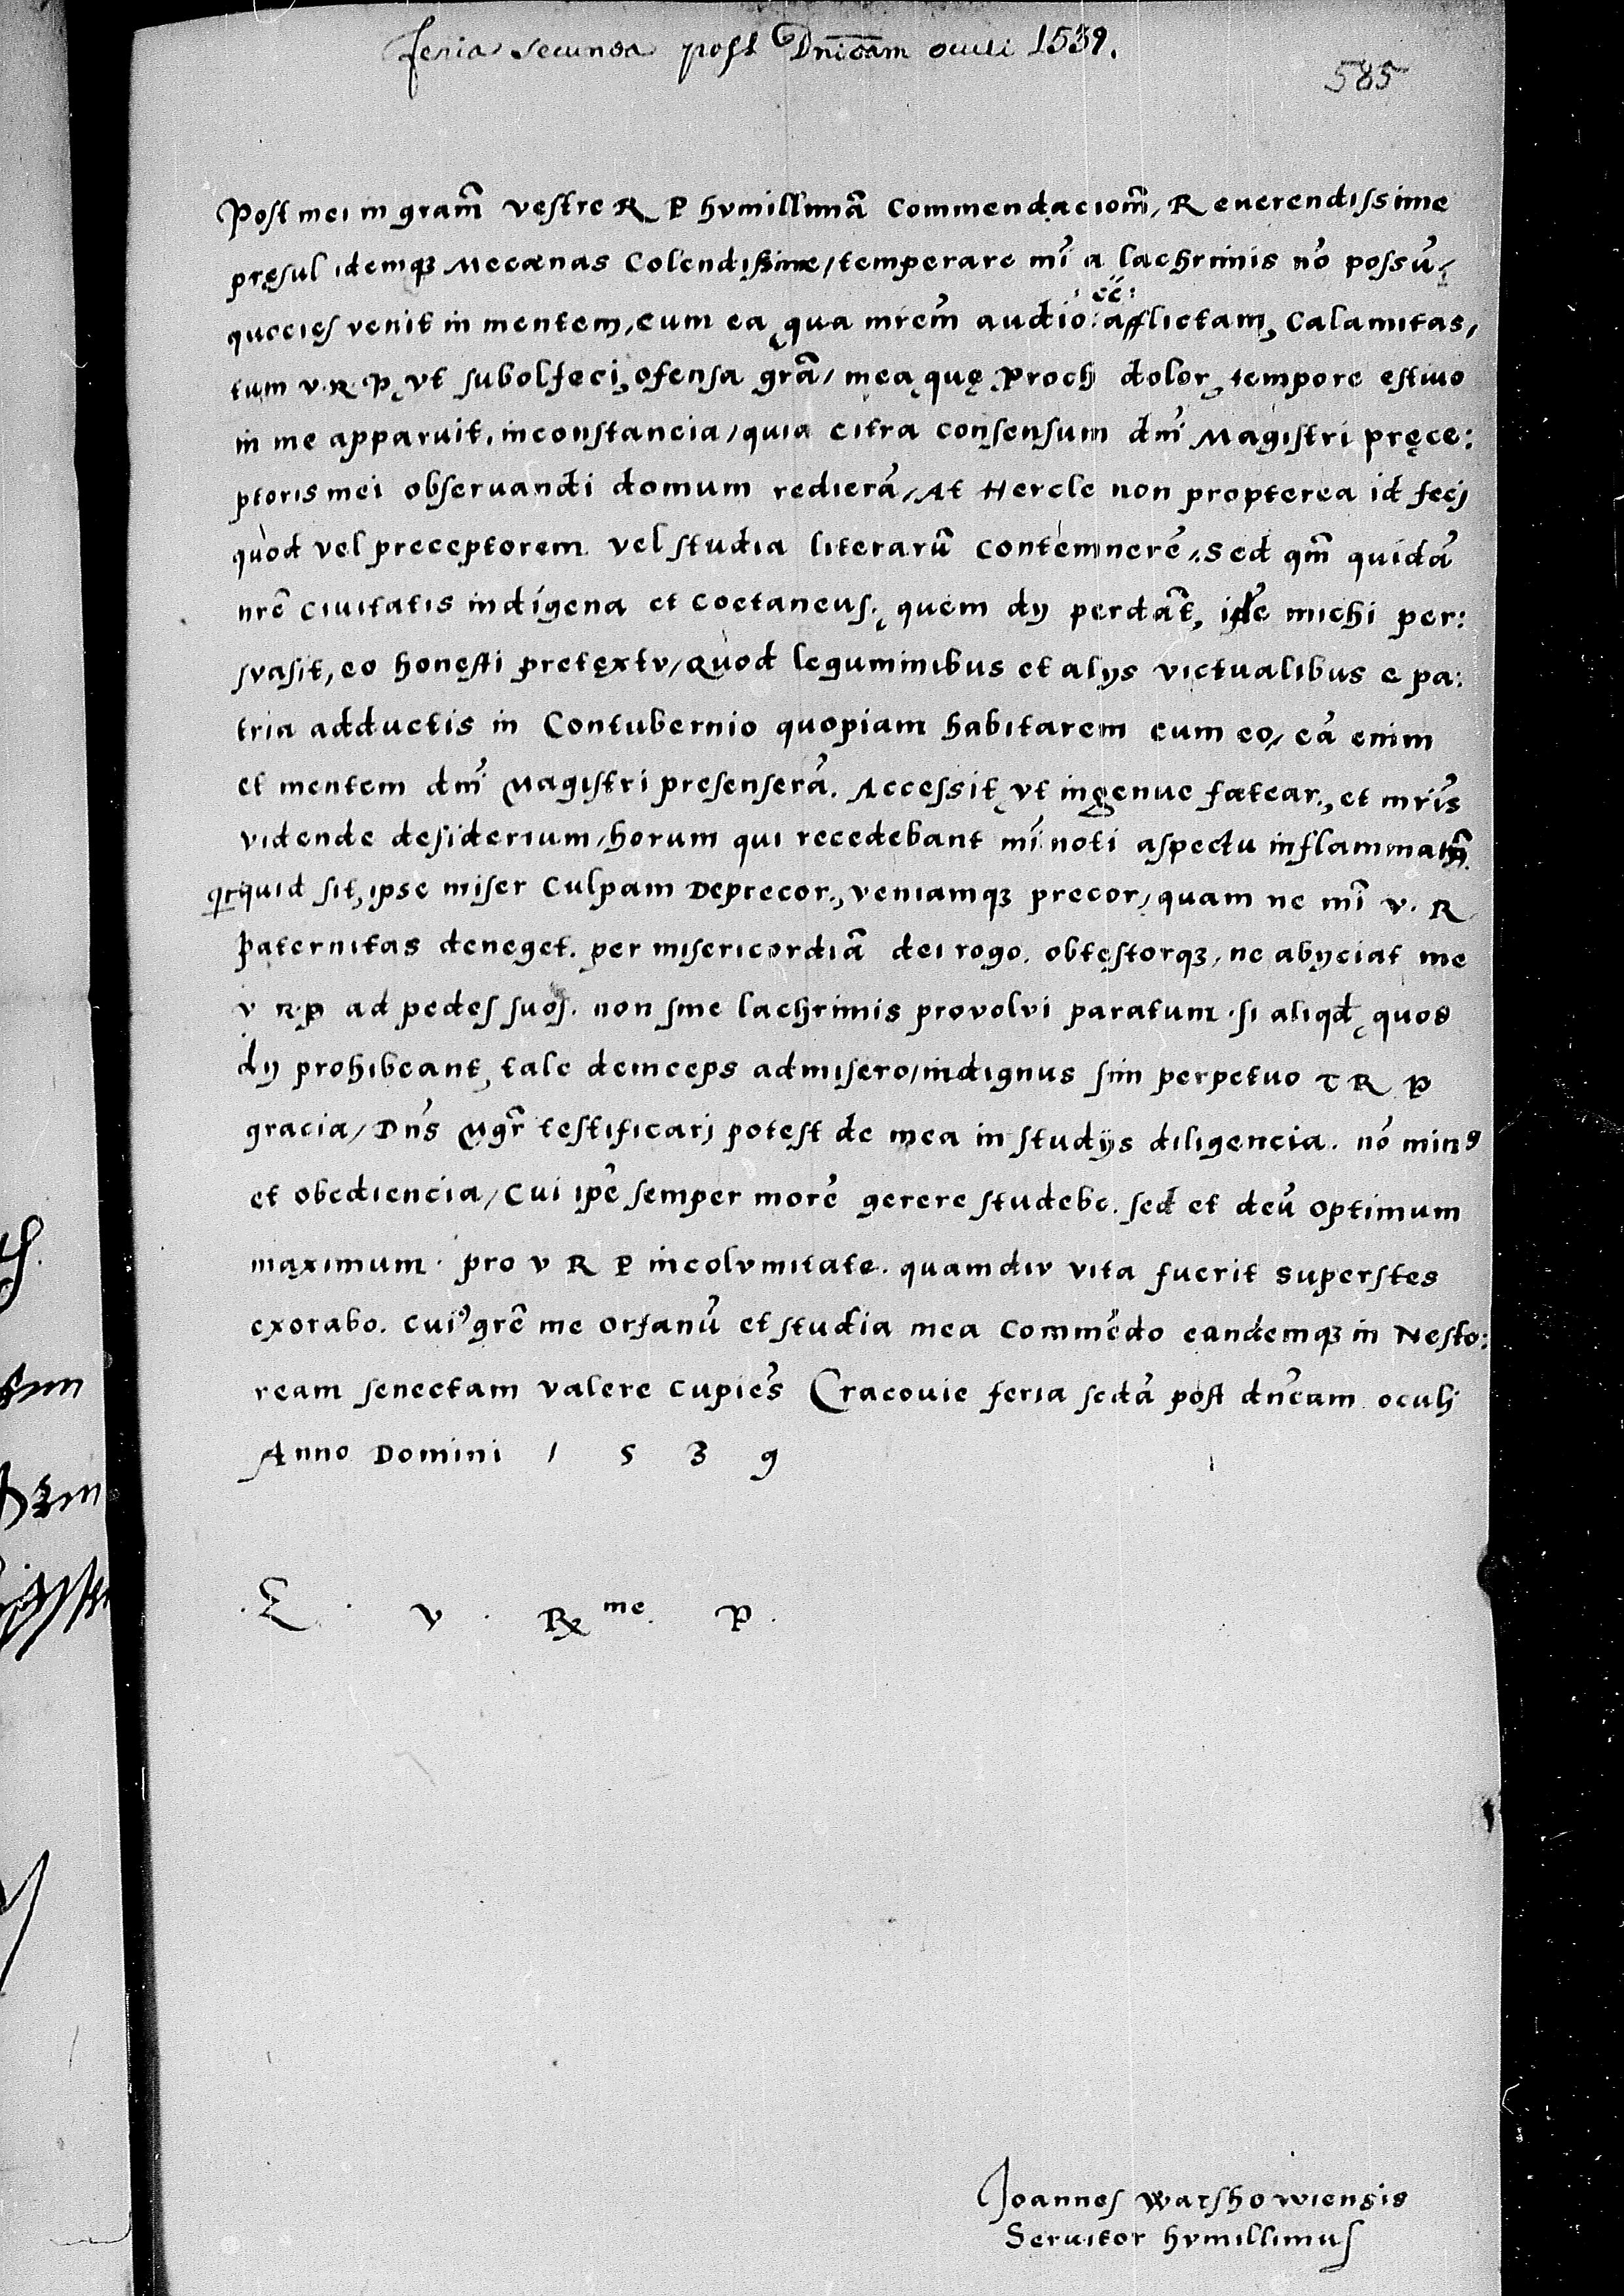 feria secunda post Dnicam oculi 1539.
585
Post mei in gram̃ vestre R P hvmillimã Commendaciom̃, Reuerendissime
pręsul idemqȝ Mecænas Colendissime, temperare mĩ a lachrimis nõ possũ,
quocies venit in mentem, cum ea, qua mrem̃ audio :eẽ: afflictam, Calamitas,
tum v. R. P, vt subolfeci, ofensa grã, mea, quę, proch dolor, tempore estiuo
in me apparuit, inconstancia, quia citra consensum dnĩ Magistri pręce:
ptoris mei obseruandi domum redierã, At Hercle non propterea id fecj
quòd vel preceptorem vel studia literarũ contemnerẽ, Sed qm̃ quidã
nrẽ ciuitatis indigena et coetaneus, quem dij perdãt, id michi per:
svasit, eo honęsti pretęxtv, Quod leguminibus et alijs victualibus e pa:
tria adductis in Contubernio quopiam habitarem cum eo, eã enim
et mentem dnĩ Magistri presenserã. Accessit, vt ingenue fatear, et mrĩs
vidende desiderium, horum qui recedebant mĩ noti aspectu inflammatũ.
quidquid sit, ipse miser Culpam Deprecor, veniamqȝ precor, quam ne mĩ v. R
Paternitas deneget. per misericordiã dei rogo. obtęstorqȝ, ne abijciat me
v R P ad pedes suos. non sine lachrimis provolvi paratum. si aliqd, quod
dij prohibeant, tale deinceps admisero, indignus sim perpetuo T R P
gracia, Dñs Mgr̃ testificarj potest de mea in studijs diligencia. nõ minꝰ
et obediencia, Cui ipẽ semper morẽ gerere studebo. sed et deũ optimum
maximum. pro v R P incolvmitate. quamdiv vita fuerit superstes
exorabo. Cuiꝰ grẽ me orfanũ et studia mea Commẽdo eandemqȝ in Nesto:
ream senectam valere cupiẽs Cracouie feria sedã post dnẽam oculj
Anno Domini 1 5 3 9
.E. v. R me. P.
Joannes Warshowiensis
Seruitor hvmillimus